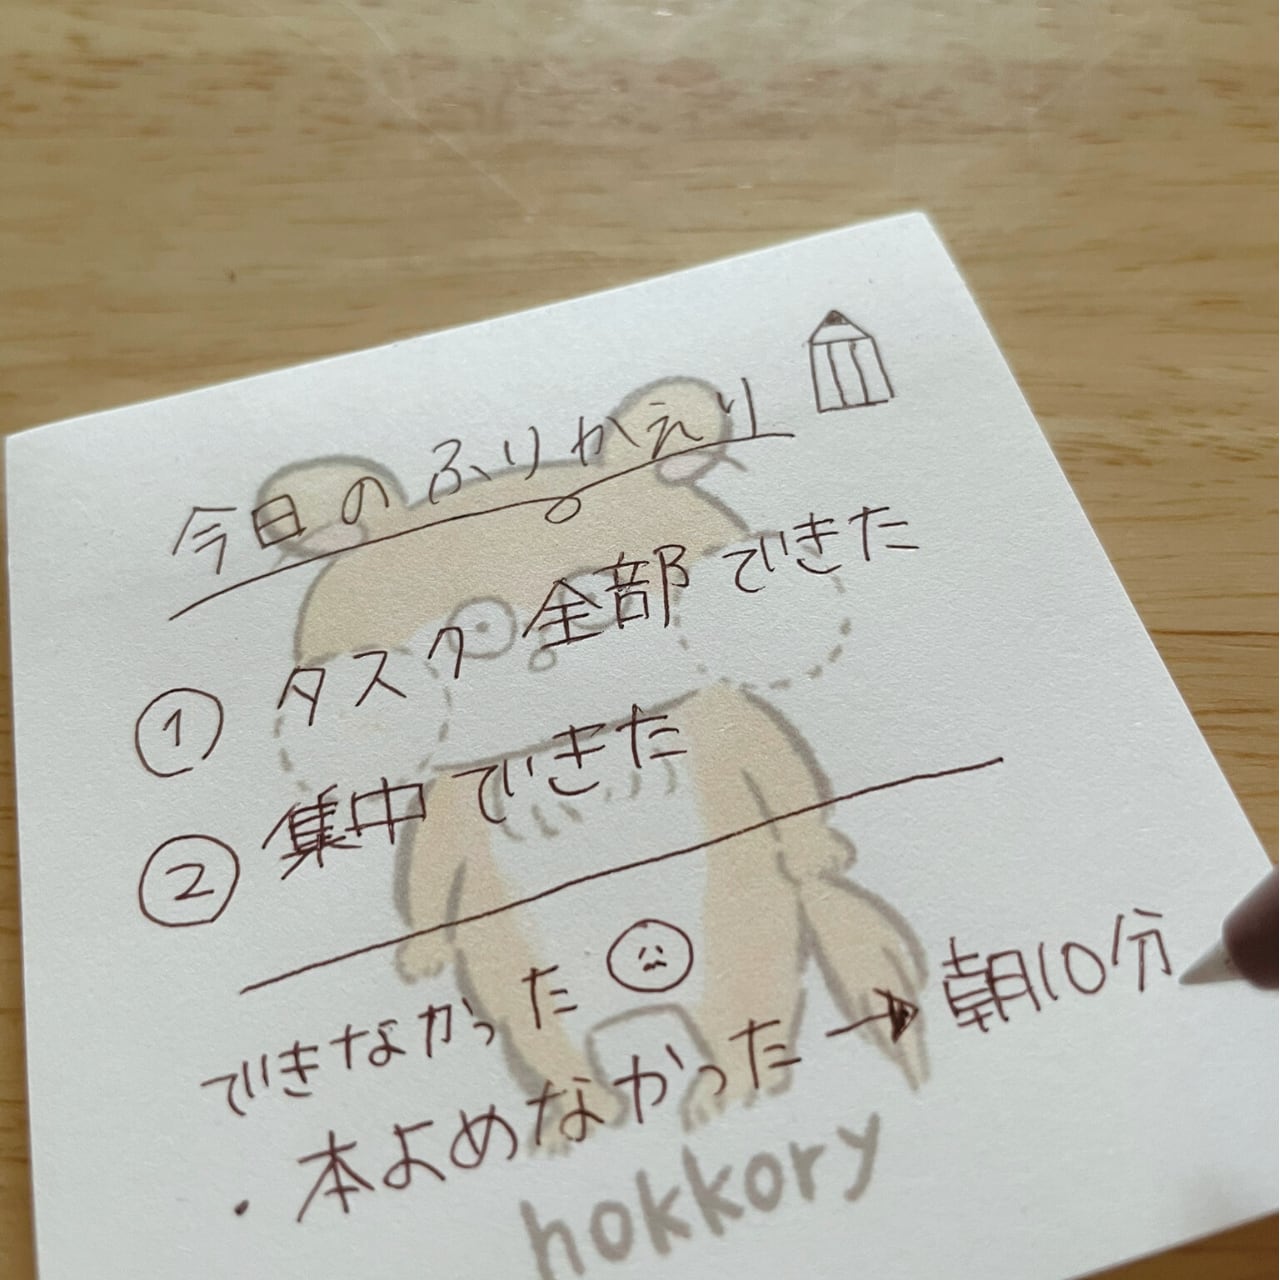 今日のふりかえり
① タスク全部できた
② 集中できた
できなかった
・本よめなかった→朝10分
hokkory